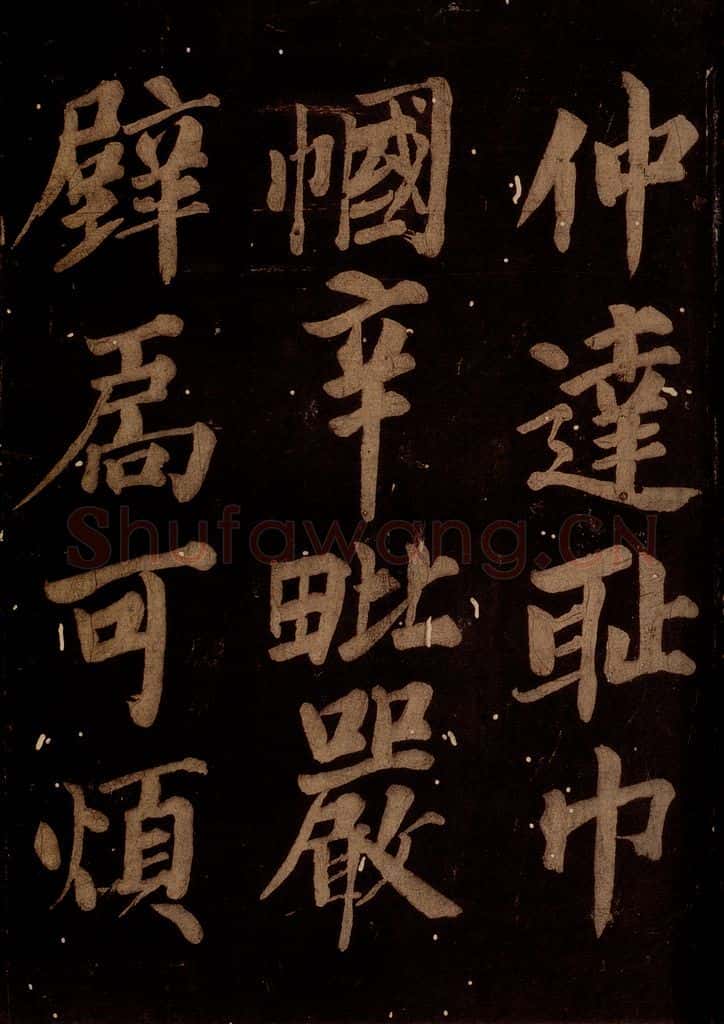 仲達耻巾
幗辛毗嚴
壁扃可煩
Shufawang.CN